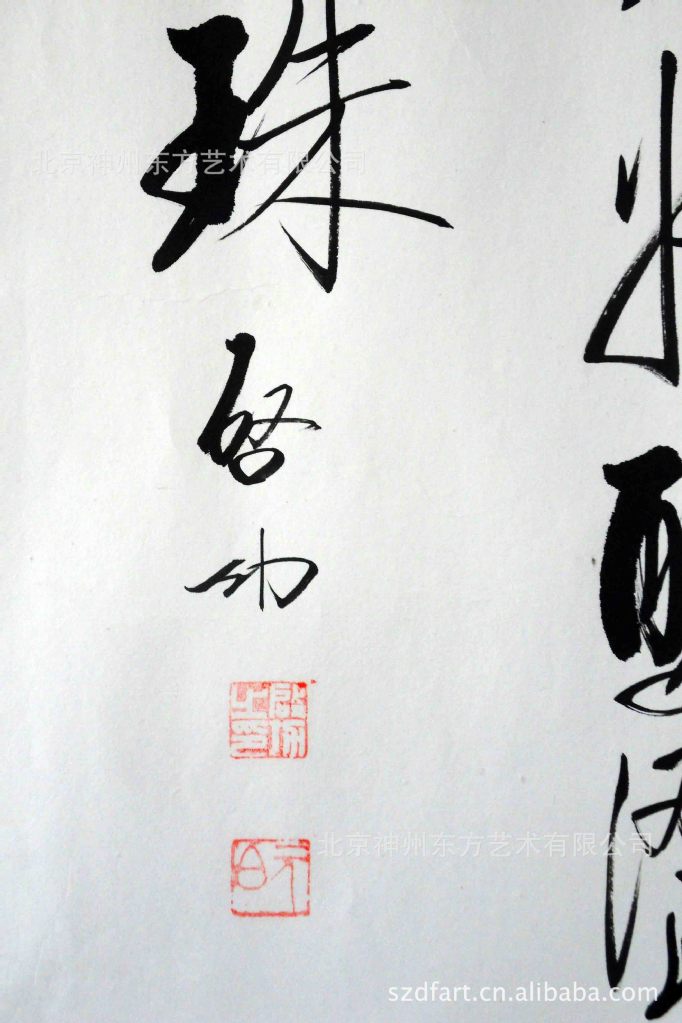 珠启功
启功之印
元白
北京神州东方艺术有限公司
北京神州东方艺术有限公司
szdfart.cn.alibaba.com